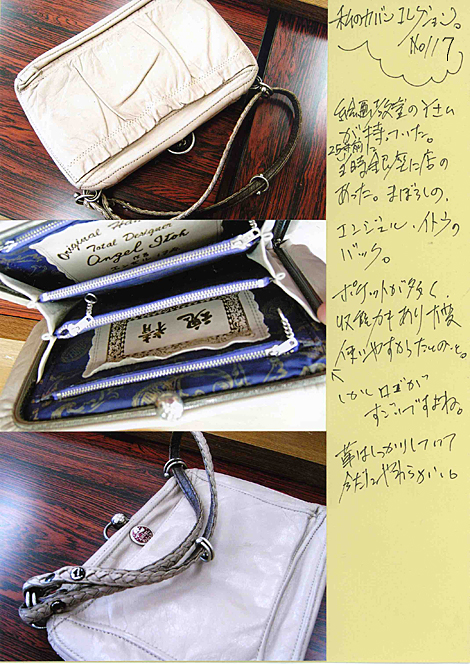 私のカバンコレクション。
No.117
絵画教室のオさん
が持っていた。
25年前に
当時銀座に店の
あった。まぼろしの、
エンジェル・イトウの
バック。
ポケットが多く
収納力もあり大変
使いやすかったとのこと。
しかしロゴが
すごいですよね。
革はしっかりしていて
今だにやわらかい。
Original Hand
Total Designer
Angel Itoh
精魂